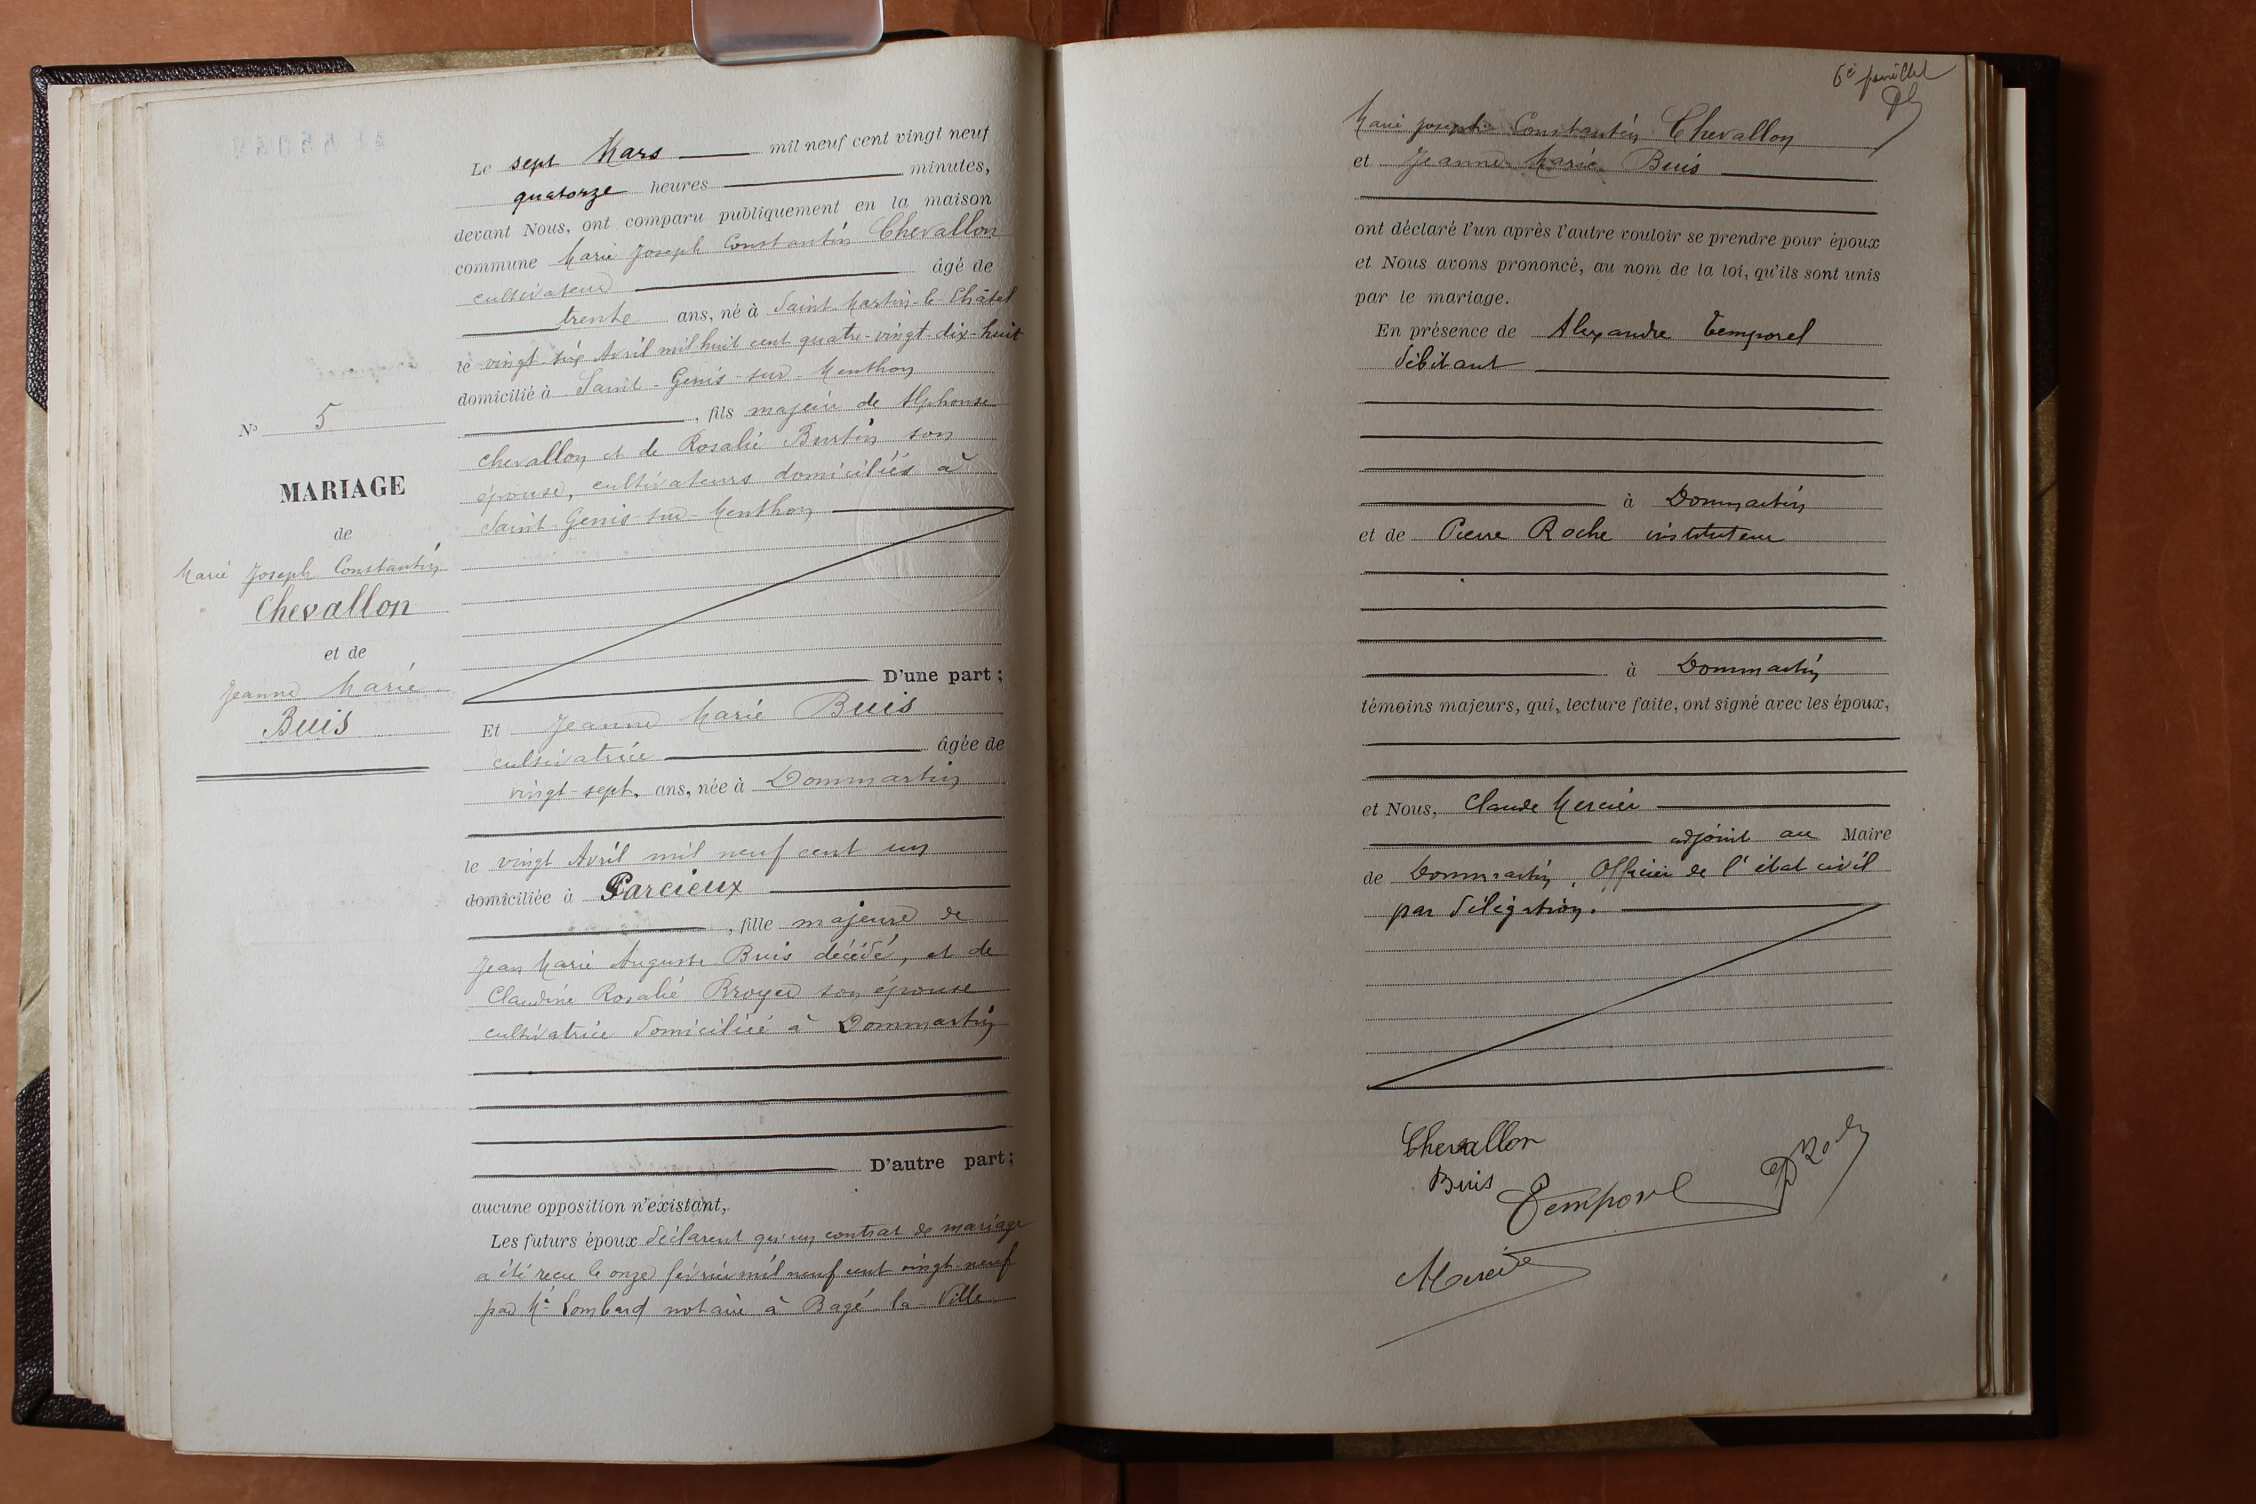 Le sept Mars mil neuf cent vingt neuf
quatorze heures minutes,
devant Nous, ont comparu publiquement en la maison
commune Marie Joseph Constantin Chevallon
cultivateur âgé de
trente ans, né à Saint-Martin-le-Châtel
le vingt-six Avril mil huit cent quatre-vingt-dix-huit
domicilié à Saint-Genis-sur-Menthon
, fils majeur de Alphonse
Chevallon et de Rosalie Burtin son
épouse, cultivateurs domiciliés à
Saint-Genis-sur-Menthon
D'une part ;
Et Jeanne Marie Buis
cultivatrice âgée de
vingt-sept ans, née à Dommartin
le vingt Avril mil neuf cent un
domiciliée à Parcieux
, fille majeure de
Jean Marie Auguste Buis décédé, et de
Claudine Rosalie Broyer son épouse
cultivatrice domiciliée à Dommartin
D'autre part ;
aucune opposition n'existant,
Les futurs époux déclarent qu'un contrat de mariage
a été reçu le onze février mil neuf cent vingt-neuf
par Me Lombard notaire à Bagé-la-Ville
No 5
MARIAGE
de
Marie Joseph Constantin
Chevallon
et de
Jeanne Marie
Buis
6e feuillet
Marie Joseph Constantin Chevallon
et Jeanne Marie Buis
ont déclaré l'un après l'autre vouloir se prendre pour époux
et Nous avons prononcé, au nom de la loi, qu'ils sont unis
par le mariage.
En présence de Alexandre Temporel
débitant
à Dommartin
et de Pierre Roche instituteur
à Dommartin
témoins majeurs, qui, lecture faite, ont signé avec les époux,
et Nous, Claude Mercier
adjoint au Maire
de Dommartin, Officier de l'état civil
par délégation.
Chevallon
Buis
Temporel
Mercier